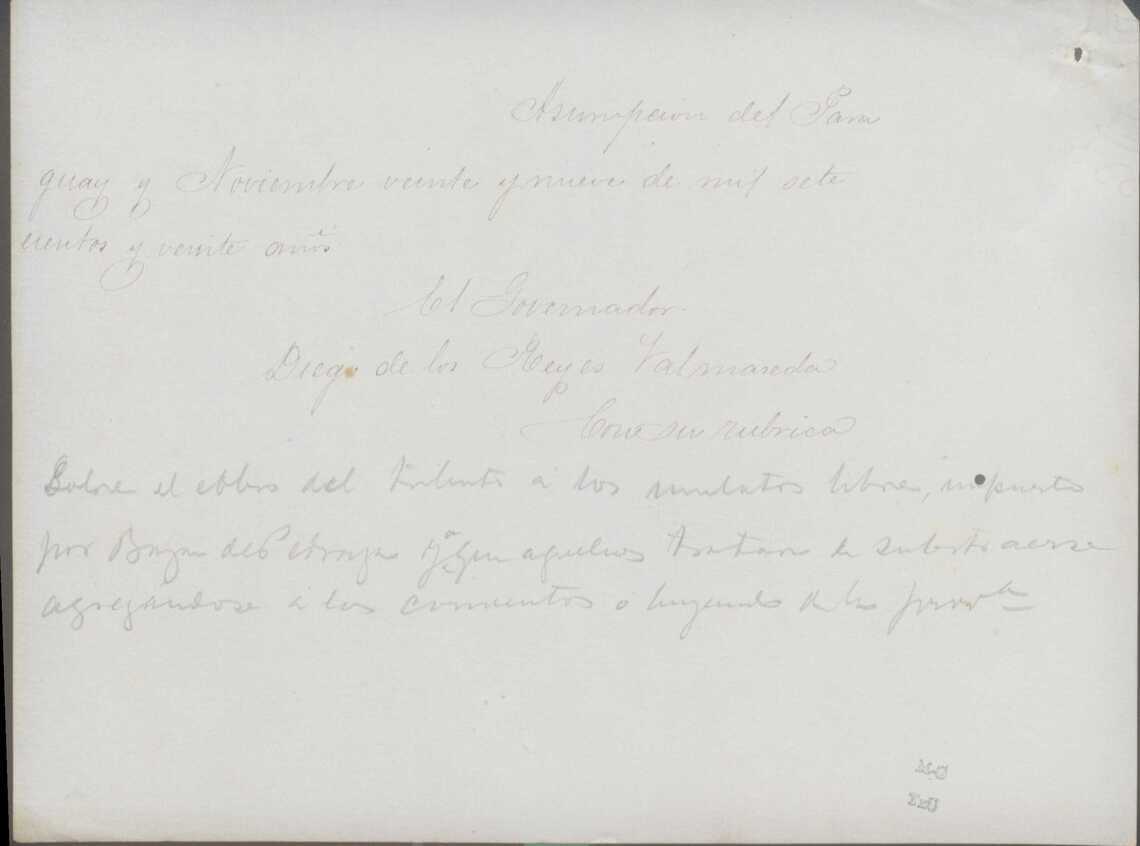 Asumpcion del Para
guay y Noviembre veinte y nueve de mil sete
cientos y veinte años
El Governador
Diego de los Reyes Valmaseda
Con su rubrica
Sobre el cobro del tributo a los mulatos libres, impuesto
por Bazan de Pedraza y que aquellos tratan de substraerse
agregandose a los conventos o huyendo de la prova